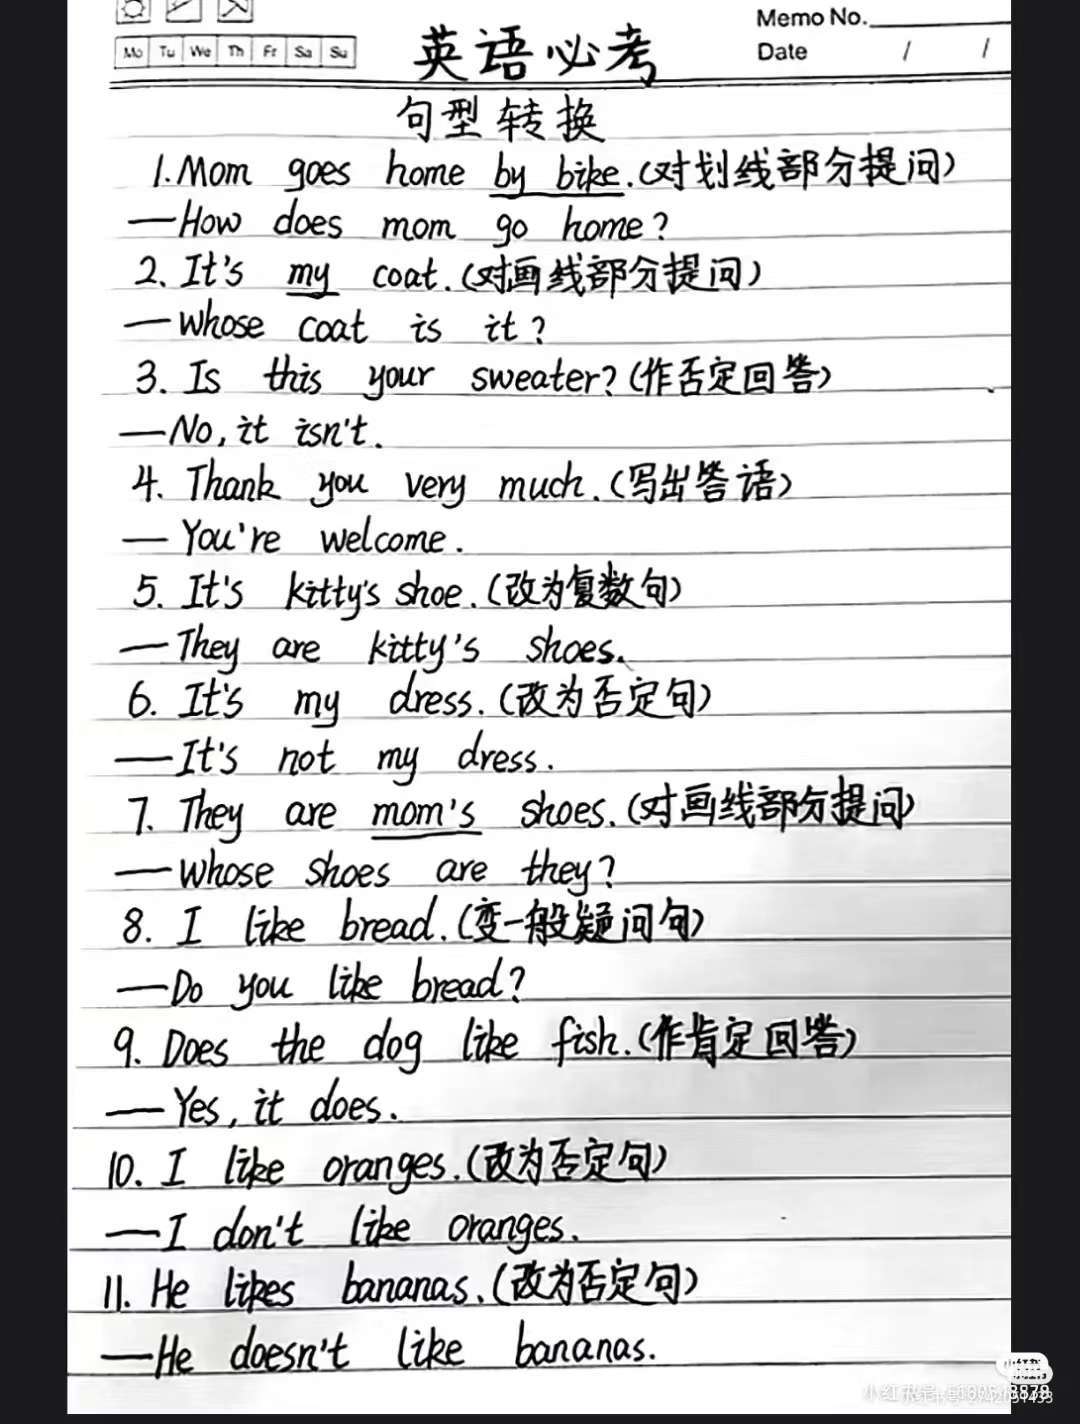 Memo No.
Mo Tu We Th Fr Sa Su
Date / /
英语必考
句型转换
1. Mom goes home by bike.(对划线部分提问)
—How does mom go home?
2. It's my coat.(对画线部分提问)
—Whose coat is it?
3. Is this your sweater?(作否定回答)
—No, it isn't.
4. Thank you very much.(写出答语)
—You're welcome.
5. It's kitty's shoe.(改为复数句)
—They are kitty's shoes.
6. It's my dress.(改为否定句)
—It's not my dress.
7. They are mom's shoes.(对画线部分提问)
—Whose shoes are they?
8. I like bread.(变一般疑问句)
—Do you like bread?
9. Does the dog like fish.(作肯定回答)
—Yes, it does.
10. I like oranges.(改为否定句)
—I don't like oranges.
11. He likes bananas.(改为否定句)
—He doesn't like bananas.
小红书